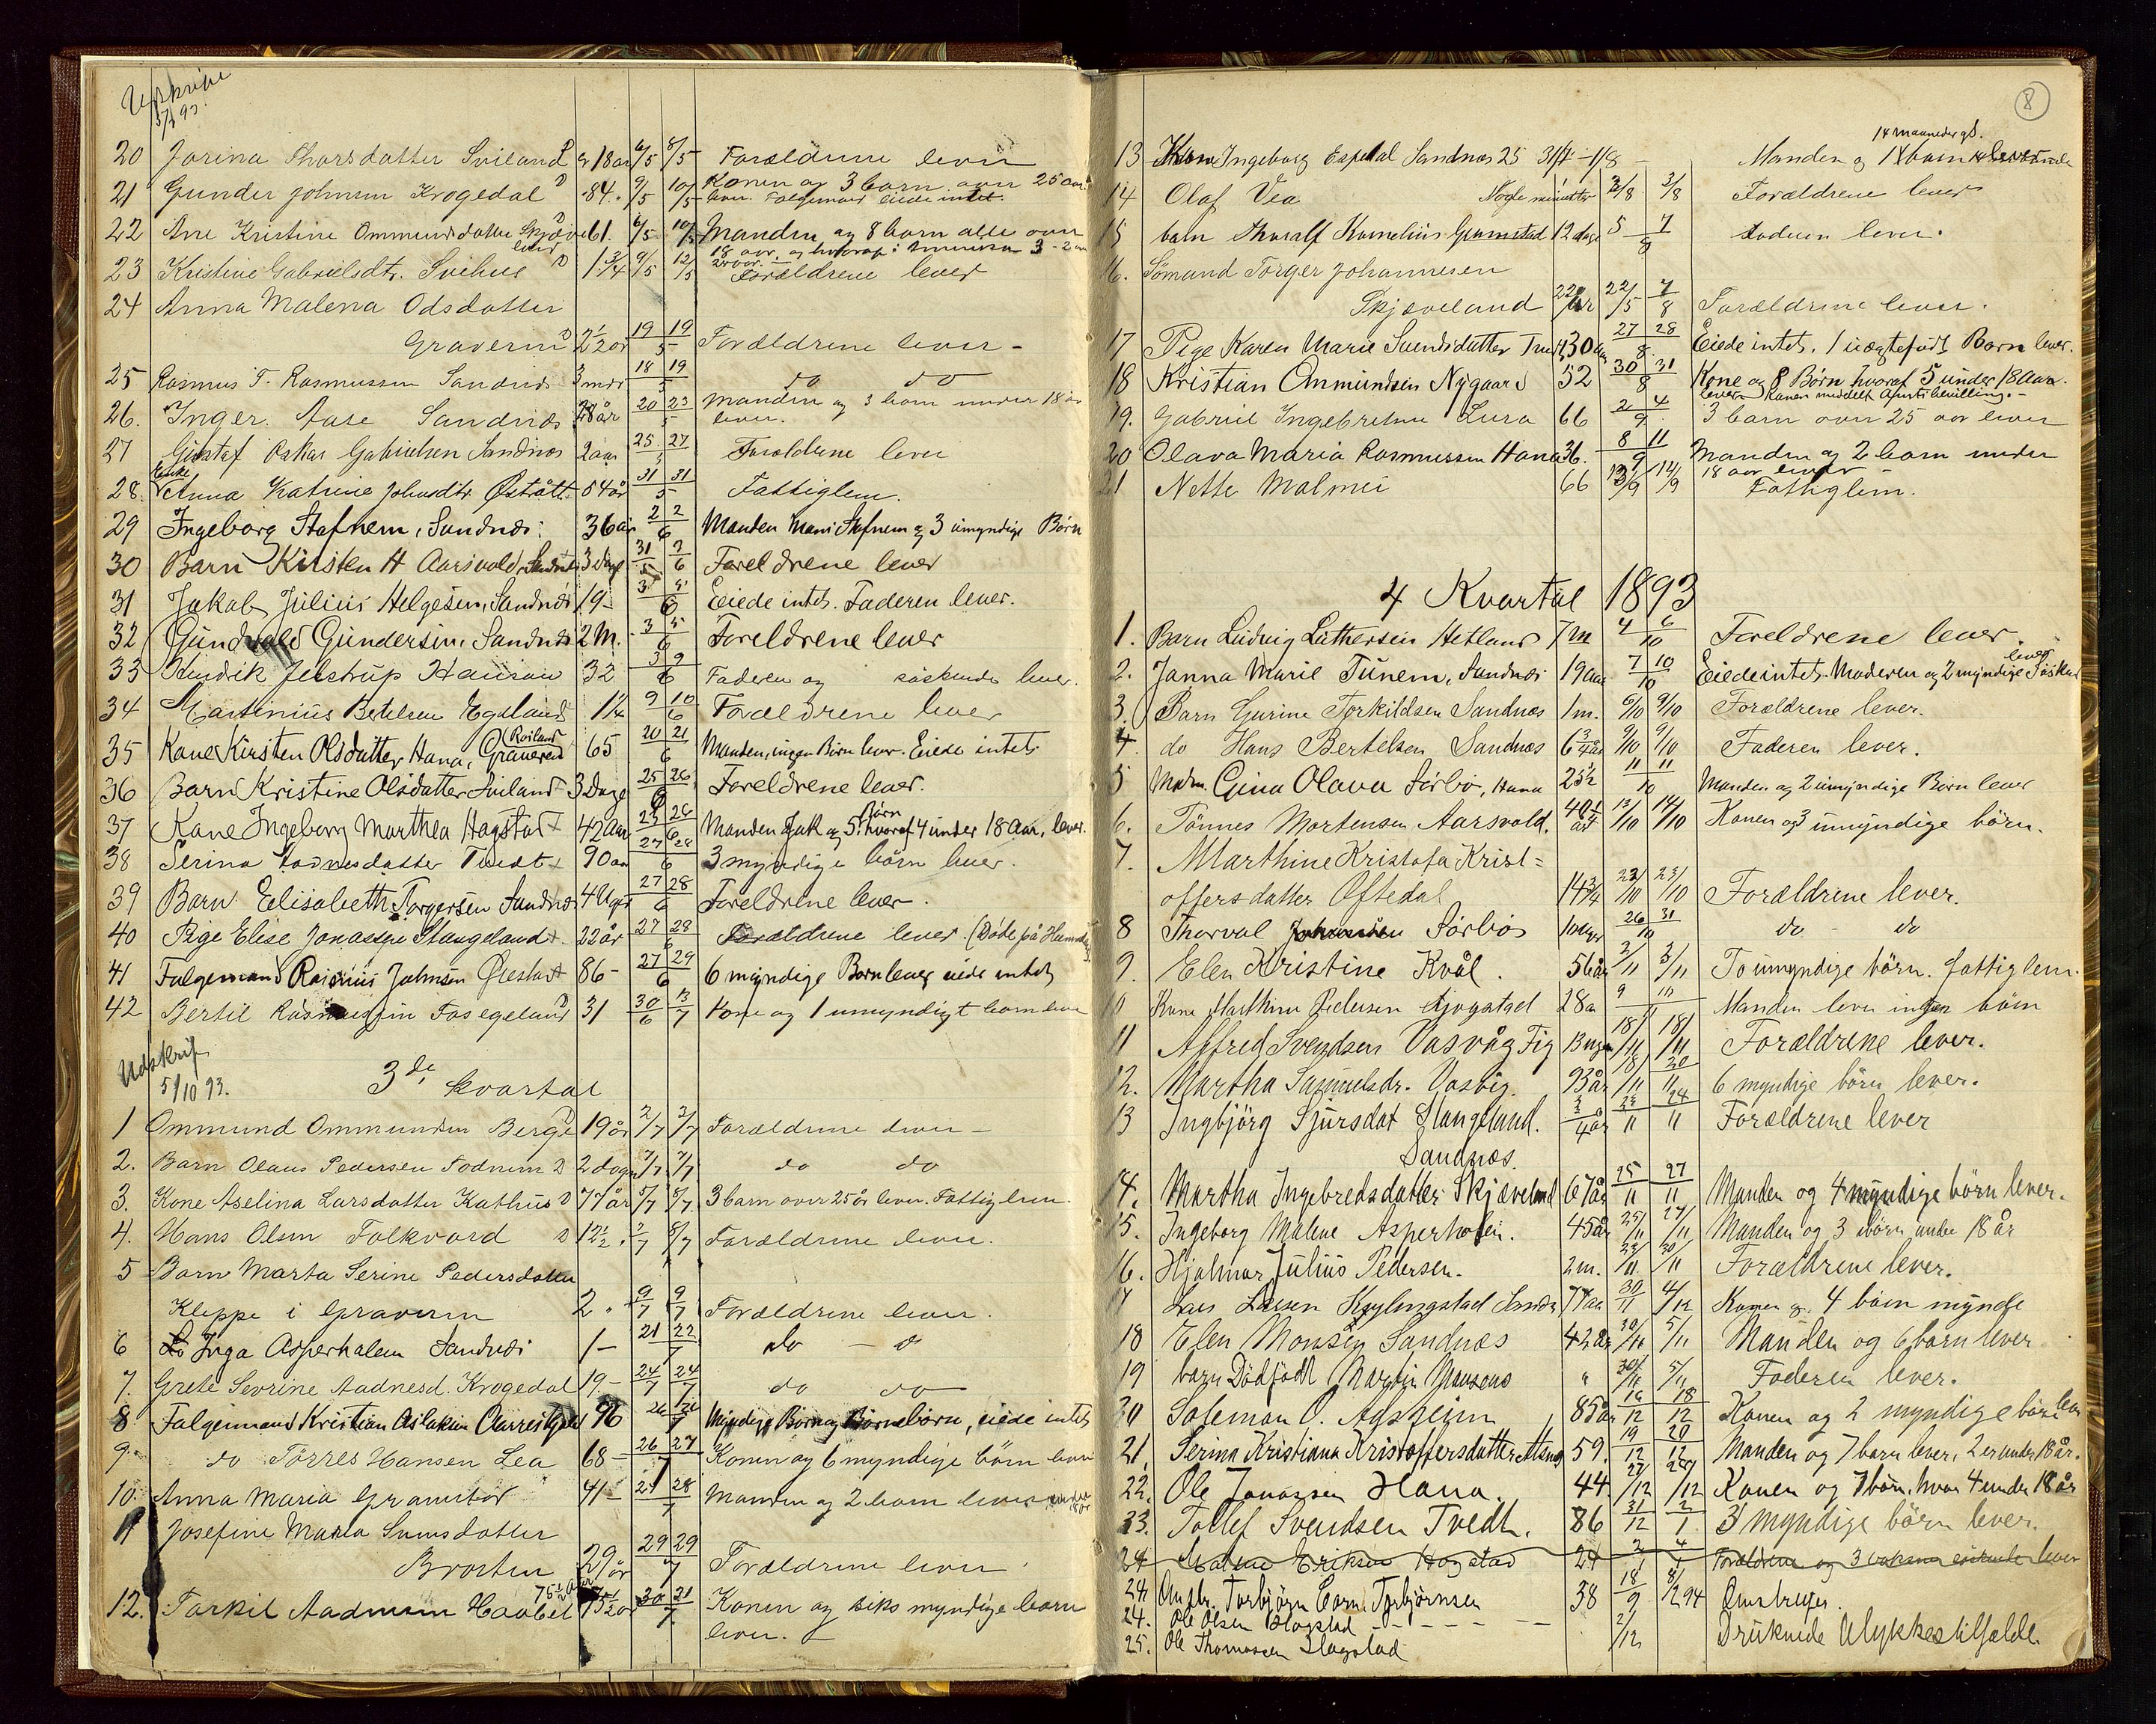 Udskrift
5/7 93.
20 Jorina Thorsdatter Sviland D 18 år 6/5 8/5 Forældrene lever
21 Gunder Johnsen Krogedal D 84 9/5 10/5 Konen og 3 børn over 25 aar
lever. Eiede intet.
22 Ane Kristine Ommundsdatter 61. 6/5 10/5 Manden og 8 barn alle over
18 aar
23 Kristine Gabrielsdtr. Svihus D 1 3/4 9/5 12/5 Forældrene lever
24 Anna Malena Odsdatter
Graveren D 2 1/2 år 19 19/5 Forældrene lever -
25 Rasmus T. Rasmussen Sandnæs 3 mdr 18 19/5 do do
26. Inger Aase Sandnæs 28 år 20 23/5 Manden og 3 barn under 18 år
lever.
27 Gustaf Oskar Gabrielsen Sandnæs 2 aar 25 27/5 Forældrene lever
28. Enke Anna Katrine Johnsdtr Østrått 54 år 31 31/5 Fattiglem.
29 Ingeborg Stafnem, Sandnæs: 36 år 2 2/6 Manden Mons Stafnem og 3 umyndige Børn
30 Barn Kirsten H Aarsvold, Sandnæs 3 Dage 31/5 3/6 Foreldrene lever
31 Jakob Julius Helgesen, Sandnæs 19 - 3 8/6 Eiede intet. Faderen lever.
32 Gundvald Gundersen, Sandnæs 2 M. 3 5/6 Foreldrene lever
33 Hendrik Jelstrup Hansen 32 3 9/6 Faderen og søskende lever.
34 Martinius Betelsen Egeland 1 1/4 9 10/6 Forældrene lever
35 Kone Kirsten Olsdatter Hana, Graveren 65 20 21/6 Manden, ingen Børn lever. Eiede intet
36 Barn Kristine Olsdatter Sviland 3 Dage 25 26/6 Foreldrene lever.
37 Kone Ingeborg Marthea Hogstad 42 Aar 23 26/6 Manden Jak og 5 Børn hvoraf 4 under 18 Aar, lever.
38 Serina Tvedt 90 aar 27 28/6 3 myndige børn lever.
39 Barn Elisabeth Torgersen Sandnæs 4 Uger 27 28/6 Foreldrene lever.
40 Pige Elise Jonassen Stangeland 22 år 27 28/6 Forældrene lever.
41 Folgemand Rasmus Johnsen 86 - 27 29/6 6 myndige Børn lever eiede intet
42 Bertil Rasmussen Fosegeland D 31 30/6 3/7 Kone og 1 umyndigt barn lever
Udskrif
5/10 93. 3de kvartal
1 Ommund Ommundsen Berge D 19 år 2/7 3/7 Forældrene lever -
2. Barn Olaus Pedersen Fodnem D 2 dogn 7/7 7/7 do do
3. Kone Aselina Larsdatter Kathus D 77 år 5/7 8/7 3 barn over 25 år lever. Fattiglem.
4. Hans Olsen Folkvord D 12 1/2. 7/7 8/7 Forældrene lever.
5 Barn Marta Serine Pedersdatter
Kleppe i Graveren 2 " 9/7 9/7 Forældrene lever.
6 Inga Asperhalem Sandnæs 1 - 21 22/7 do - o
7. Grete Sevrine Aadnesd. Krogedal 19. - 24/7 24/7 do do
8 Folgemand Kristian Aslaksen 96 26 26/7 Myndige Børn og Børnebørn, eiede intet
9. do Tørres Hansen Lea 68 - 26 27/7 Konen og 6 myndige børn lever
10. Anna Maria Gramstad 41 - 27 28/7 Manden og 2 barn lever under 18 år
11 Josefine Maria
Brosten 29 år 29 29/7 Forældrene lever
12. Torkil Aadnesen Haabet 75 1/2 år 30 31/7 Konen og siks myndige barn
lever.
8
13 Ingeborg Espedal Sandnæs 25 31/7 - 1/8 - Manden og 1 barn 14 maaneder gl. lever
14 Olaf Vea Nogle minutter 2/8 3/8 Forældrene lever
15 barn Thoralf Kornelius Gramstad 12 dage 5 7/8 Faderen lever.
16. Sømund Torger Johannesen
Skjæveland 22 år 22/5 7/8 Forældrene lever.
17 Pige Karen Marie Svendsdatter 30 aar 27 28/8 Eiede intet. 1 uægtefødt Barn lever.
18 Kristian Ommundsen Nygaard 52 30 31/8 Kone og 8 Børn hvoraf 5 under 18 Aar.
lever. Konen meddelt bevilling. -
19. Gabriel Ingebretsen Lura 66 2 4/9 3 barn over 25 aar lever
20 Olava Maria Rasmussen Hana 36. 8 11/9 Manden og 2 barn under
18 aar lever
21 Nette Malmei 66 13/9 14/9 Fattiglem.
4 Kvartal 1893
1. Barn Ludvig Luthersen Hetland 7 m 4 6/10 Foreldrene lever.
2. Janna Marie Tunem, Sandnæs 19 aar 7 10/10 Eiede intet. Moderen og 2 myndige Søsken lever
3. Barn Gurine Torkildsen Sandnæs 1 m. 6/10 9/10 Forældrene lever.
4. do Hans Bertelsen Sandnæs 6 3/4 år 9/10 9/10 Faderen lever.
5 Mdm. Gina Olava Sørbø, Hana 25 1/2 11 11/10 Manden og 2 umyndige Børn lever
6. Tønnes Mortensen Aarsvold. 40 1/4 år 13/10 14/10 Konen og 3 umyndige børn.
7. Marthine Kristofa Krist=
offersdatter Oftedal 14 3/4 22/10 23/10 Forældrene lever.
8 Thorval Johansen Sørbø 10 uger 26 31/10 do - do
9. Elen Kristine Kvål. 56 år 2/11 3/11 To umyndige børn. fattiglem.
10 Kone Marthine Pedersen 28 a 9 10/11 Manden lever ingen børn
11 Alfred Svendsen Vasvåg 18/11 18/11 Forældrene lever.
12. Martha Samuelsdr. Vasvig. 93 år 18/11 20/11 6 myndige børn lever.
13 Ingbjörg Sjursdat Stangeland. 3/4 år 23/11 24/11 Forældrene lever
Sandnæs.
14. Martha Ingebredsdatter Skjæveland 67 år 25/11 27/11 Manden og 4 myndige børn lever.
15. Ingeborg Malene Asperholen. 45 år 25/11 27/11 Manden og 3 børn under 18 år
16. Hjalmar Julius Pedersen. 2 m. 28/11 30/11 Forældrene lever.
17 Lars Larsen Kyllingstad Sandn 77 aar 30/11 4/12 Konen og 4 barn mynde
18 Elen Monsen Sandnæs 42 år 30/11 5/11 Manden og 6 barn lever
19 barn Dødfødt Martin Hansens " 30/11 5/11 Faderen lever.
20 Soleman O. Adsheim 85 år 16/12 18/12 Konen og 2 myndige børn lever
21. Serina Kristiana Kristoffersdatter 59. 19/12 20/12 Manden og 7 barn lever, 2 er under 18 år.
22. Ole Jonassen Hana. 44 27/12 28/12 Konen og 7 børn, hvor 4 under 18 år
23. Tollef Svendsen Tvedt. 86 31/12 2/1 3 myndige börn lever.
24 Malene Eriksen Hogstad 24 2/1 4/1 Forældrene og 3 voksne søskende lever
24 Torbjörn Torbjørnsen 38 18/9 8/1 294
24. Ole Olsen Hogstad - - - - -
25. Ole Thomassen Hogstad 2/12 Druknede Ulykkestilfælde.